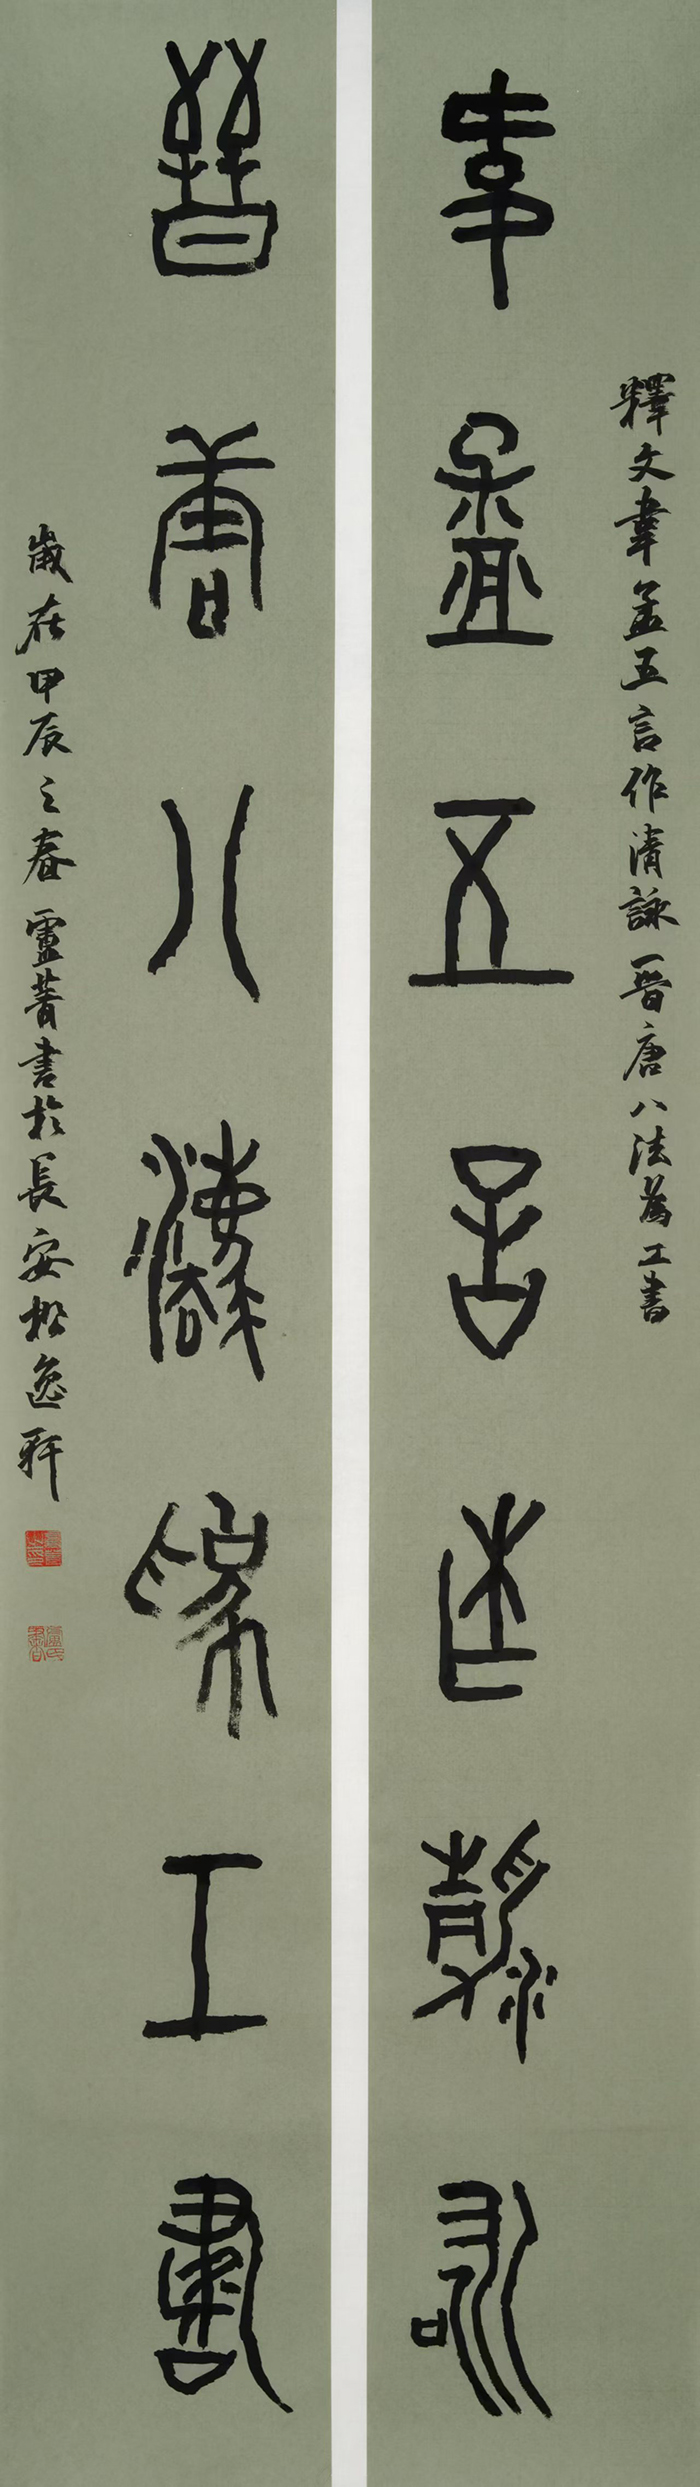 釋文韋孟五言作清詠晉唐八法為工書
韋孟五言作清詠
晉唐八法為工書
歲在甲辰之春盧菁書於長安松逸軒